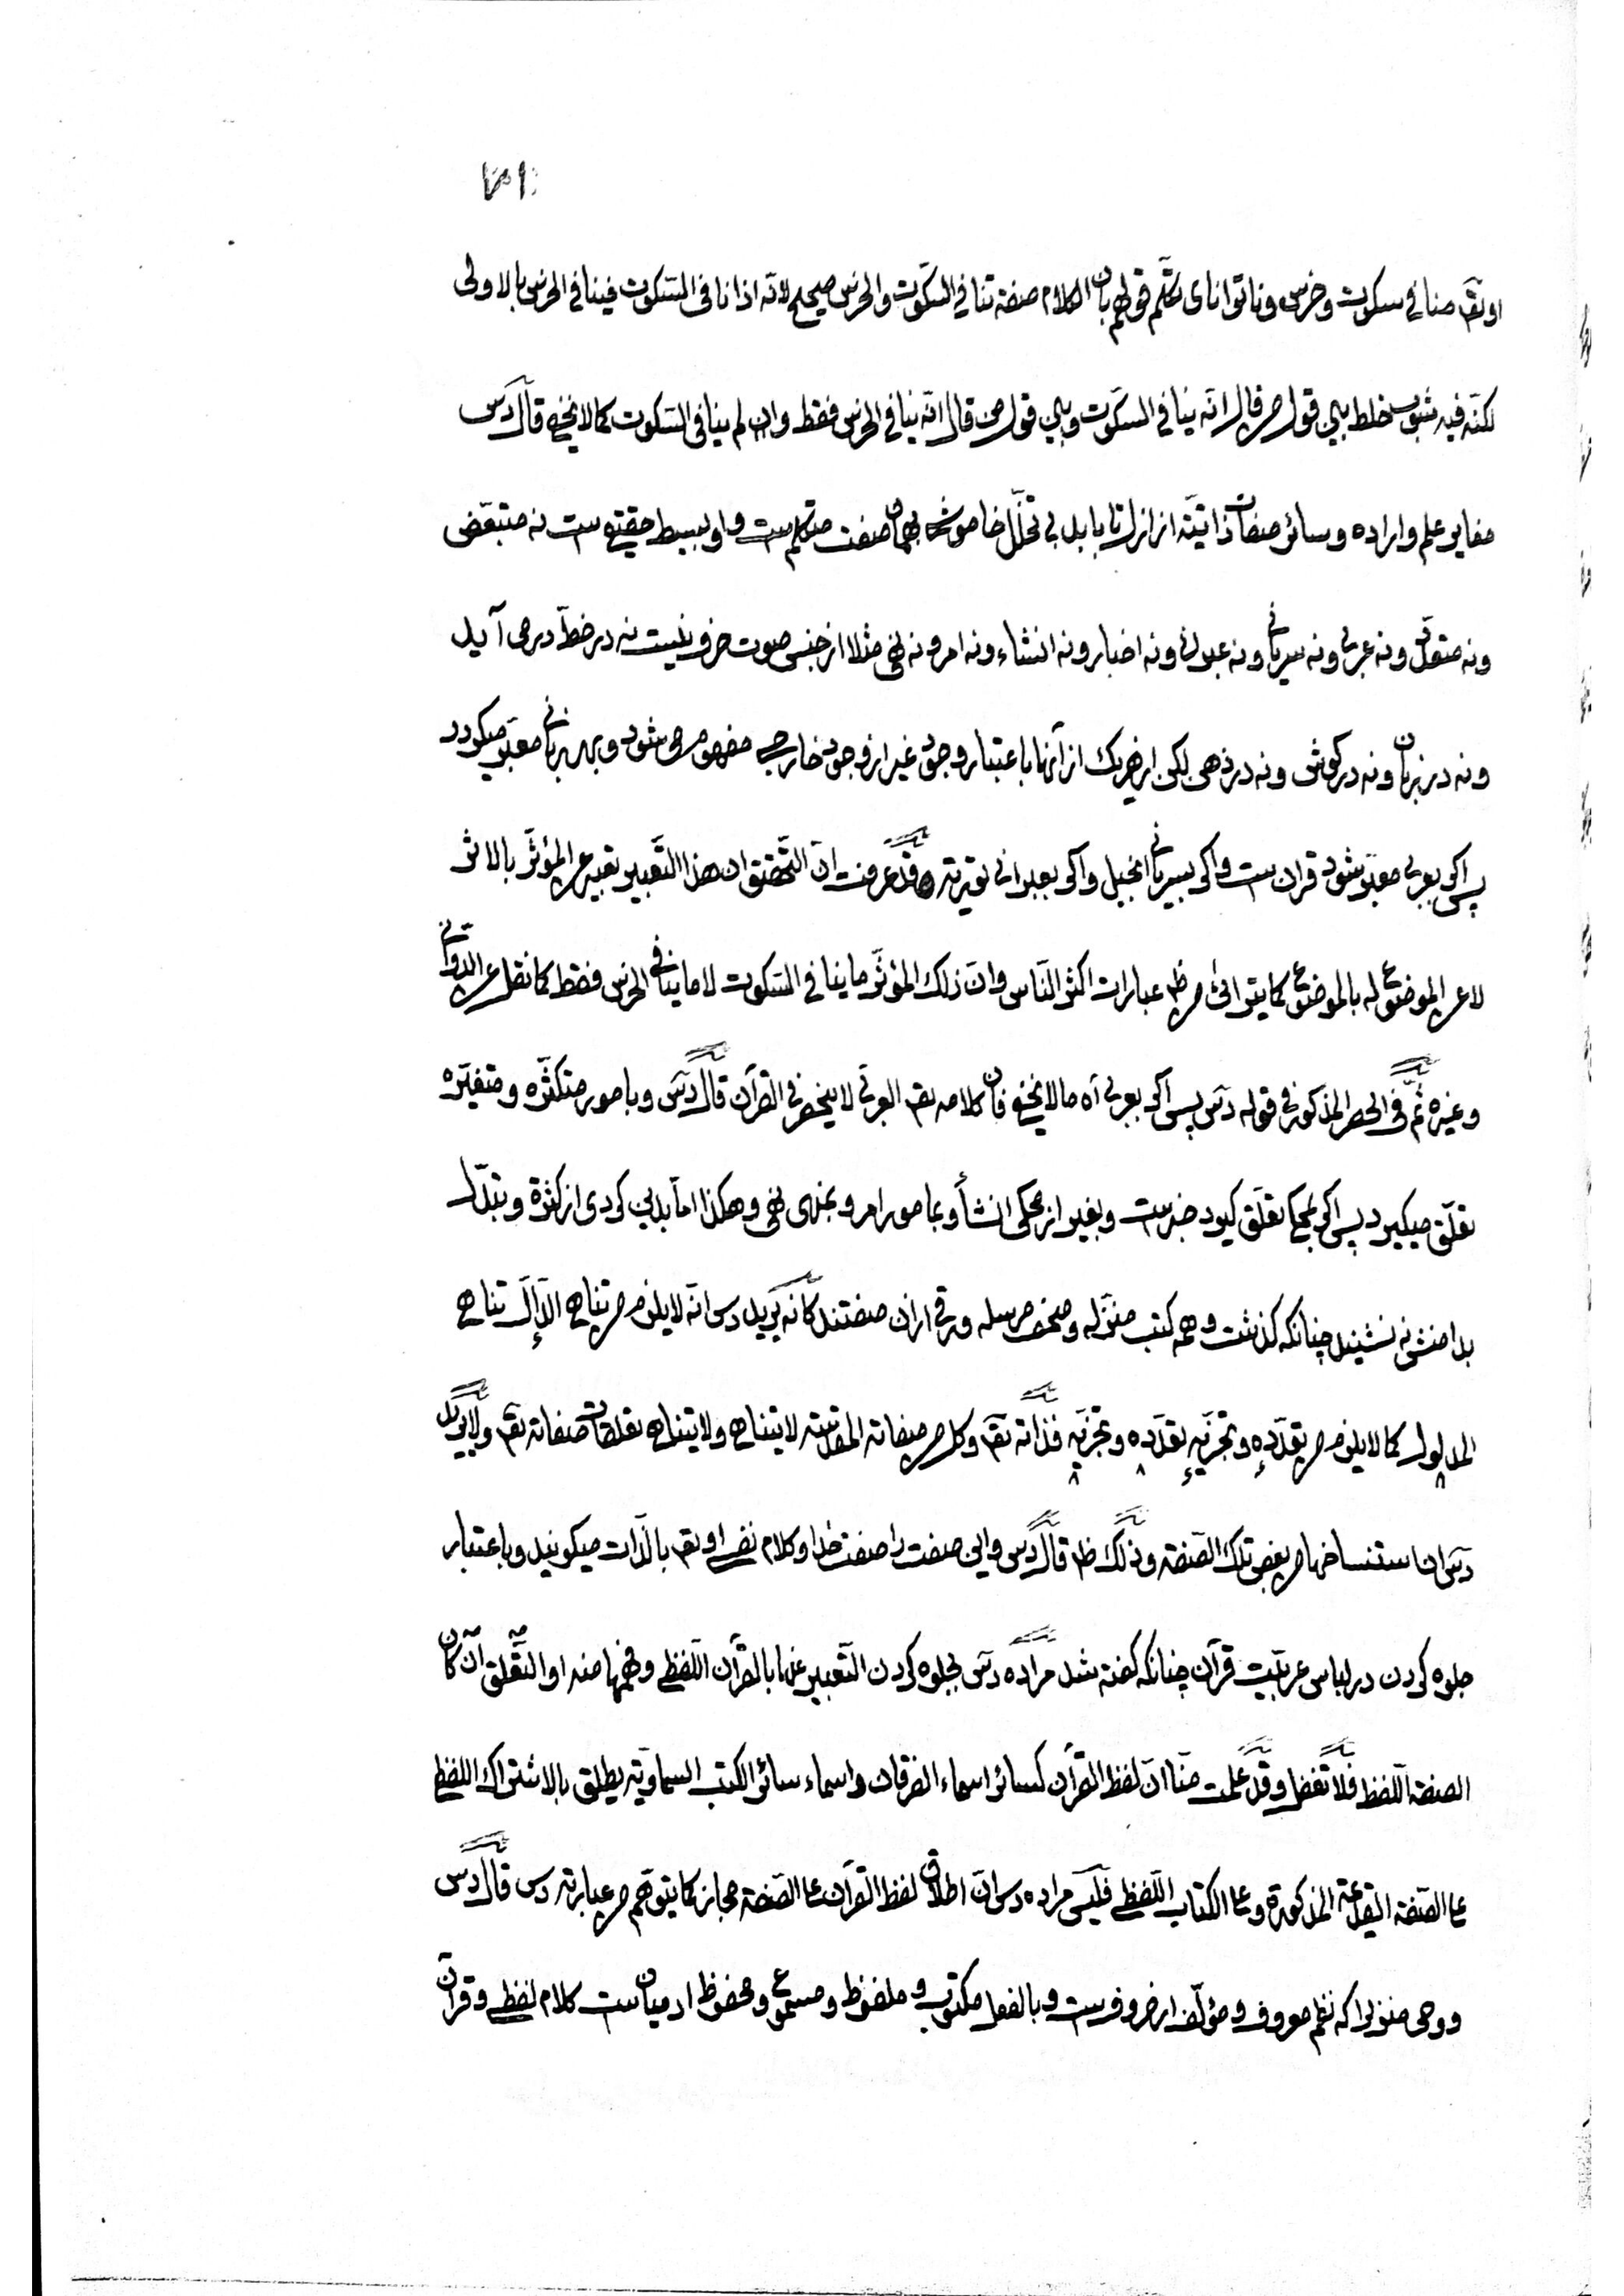 او تع منافی سکوت و خرس و ناتوانای تکلّم قولهم بان الکلام صفة تنافی السّکوت والخرس صحیح لانّه اذا نافی السّکوت فینافی الخرس بالاولی
لکنّه فیه شوب خلط بین قول من قال انّه ینافی السکوت وبین قول من قال انّه ینافی الخرس فقط وان لم ینافی السّکوت کما لا یخفی قال دس
مغایر علم و اراده و سائر صفات ذاتیّه از ازل تا بابد بی تخلّل خاموشی بهمان صفت متکلم ست و او بسیط حقیقی ست نه متبعّض
ونه متعدّد ونه عربی ونه سریانی ونه عبرانی ونه اخبار ونه انشاء ونه امر ونه نهی مثلا از جنس صوت حرف نیست نه در خطّ درمی آید
ونه در زبان ونه در کوش ونه در ذهن لکن از هر یک از آنها باعتبار وجود غیر از وجود خارجی مفهوم می شود وبهر زبانی معبّر میکردد
پس اکر بعربی معبّر شود قران ست واکر بسریانی انجیل واکر بعبرانی توریة وقد عرفت انّ التّحقیق ان هذا التّعبیر تعبیر عن المؤثّر بالاثر
لا عن الموضوع له بالموضوع کما یترائی من ظ عبارات اکثر النّاس وانّ ذلک المؤثّر ما ینافی السّکوت لا ما ینافی الخرس فقط کما نقل عن الدّوانی
وغیره ثمّ فی الحصر المذکور فی قوله دس پس اکر بعربی آه ما لا یخفی فان کلامه تع العربی لا ینحصر فی القرآن قال دس وبامور متکثّره ومتغیّره
تعلّق میکیرد پس اکر بمحکی تعلّق کیرد خبر ست وبغیر از محکی انشأ وبمامور امر وبمنهی نهی وهکذا امّا بدین کردی از کثرة وتبدّل
بدامنش نه نشیند چنانکه کذشت وهمه کتب منزّله وصحف مرسله ورقی از ان صفتند کانه یرید دس انّه لا یلزم من تناهی الدّالّ تناهی
المدلول کما لا یلزم من تعدّده وتجزّیه تعدّده وتجزّیه فذاته تع وکل من صفاته المقدّسة لا یتناهی ولا یتناهی تعلقات صفاته تع ولا یرید
دس ان استنساخها من بعض تلک الصّفة وذلک ظ قال دس واین صفت را صفت خدا وکلام نفسی او تع بالذّات میکویند وباعتبار
جلوه کردن در لباس عربیّت قرآن چنانکه کفته شد مراده دس بجلوه کردن التّعبیر عنها بالقرآن اللّفظی وفهمها منه او التّعلّق ان کان
الصفة اللّفظ فلا تغفل وقد علمت منّا انّ لفظ القرآن کسائر اسماء الفرقان واسماء سائر الکتب السماویّة یطلق بالاشتراک اللفظی
علی الصّفة القدیمة المذکورة وعلی الکتاب اللّفظی فلیس مراده دس انّ اطلاق لفظ القرآن علی الصّفة مجاز کما یتوهّم من عبارته دس قال دس
ووحی منزل را که نظم معروف ومؤلّف از حروف ست وبالفعل مکتوب وملفوظ ومسموع ومحفوظ ادمیان ست کلام لفظی وقرآن